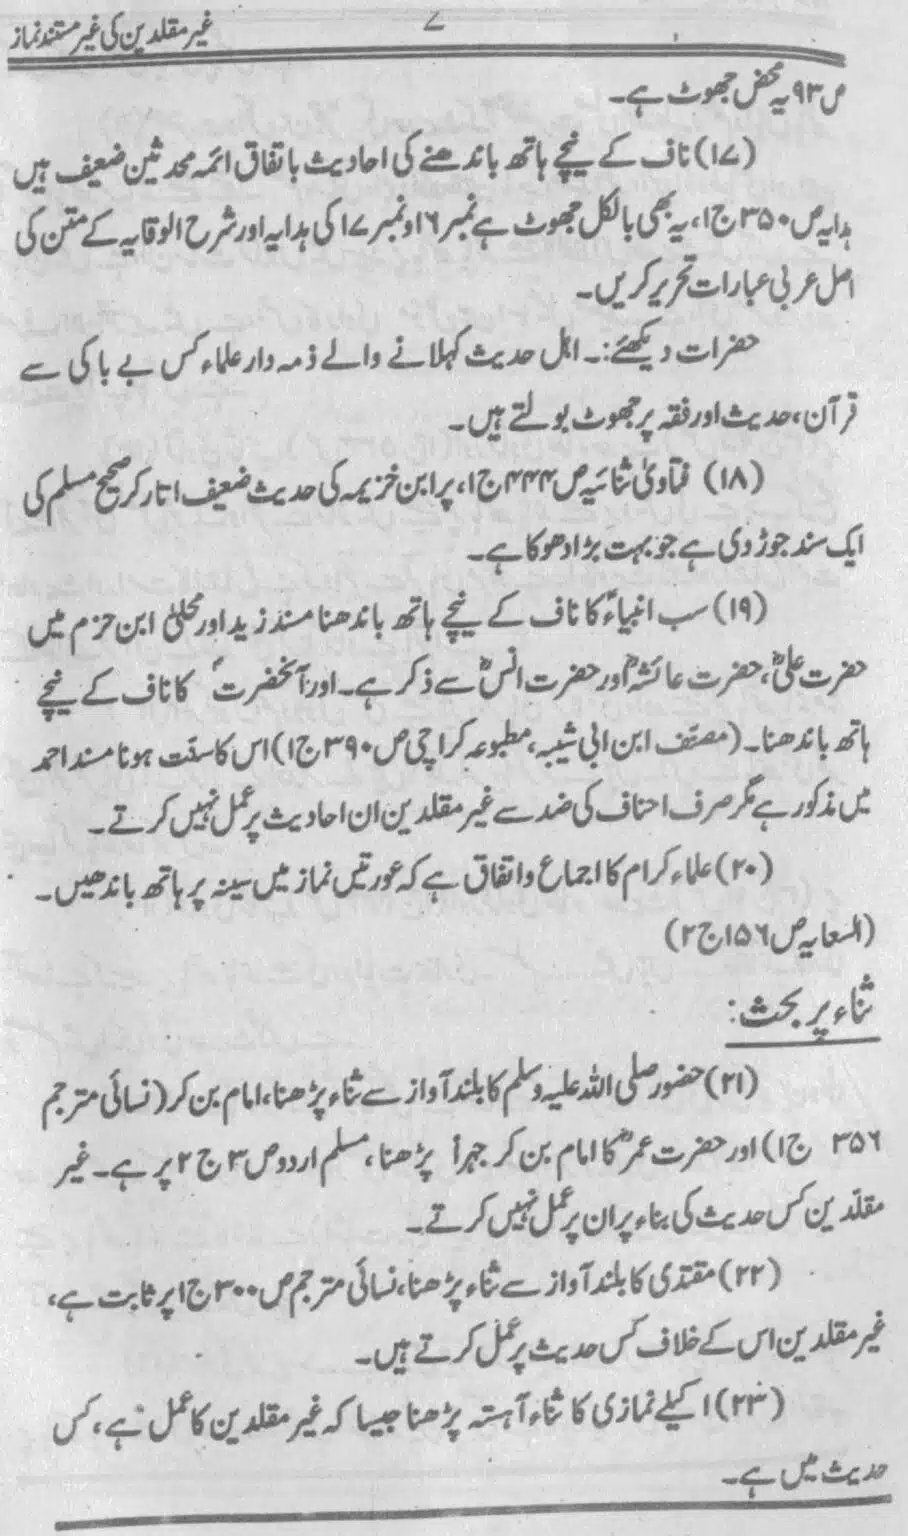 غیر مقلدین کی غیر مستند نماز
۷
ص۹۳ یہ محض جھوٹ ہے۔
(۱۷) ناف کے نیچے ہاتھ باندھنے کی احادیث باتفاق ائمہ محدثین ضعیف ہیں
ہدایہ ص۳۵۰ ج۱، یہ بھی بالکل جھوٹ ہے نمبر ۱۶ و نمبر ۱۷ کی ہدایہ اور شرح الوقایہ کے متن کی
اصل عربی عبارات تحریر کریں۔
حضرات دیکھئے:۔ اہل حدیث کہلانے والے ذمہ دار علماء کس بے باکی سے
قرآن، حدیث اور فقہ پر جھوٹ بولتے ہیں۔
(۱۸) فتاویٰ ثنائیہ ص۴۴۴ ج۱، پر ابن خزیمہ کی حدیث ضعیف اتار کر صحیح مسلم کی
ایک سند جوڑ دی ہے جو بہت بڑا دھوکا ہے۔
(۱۹) سب انبیاءؑ کا ناف کے نیچے ہاتھ باندھنا مسند زید اور محلیٰ ابن حزم میں
حضرت علیؓ، حضرت عائشہؓ اور حضرت انسؓ سے ذکر ہے۔ اور آنحضرتؐ کا ناف کے نیچے
ہاتھ باندھنا۔ (مصنف ابن ابی شیبہ، مطبوعہ کراچی ص۳۹۰ ج۱) اس کا سنّت ہونا مسند احمد
میں مذکور ہے مگر صرف احناف کی ضد سے غیر مقلدین ان احادیث پر عمل نہیں کرتے۔
(۲۰) علماء کرام کا اجماع و اتفاق ہے کہ عورتیں نماز میں سینہ پر ہاتھ باندھیں۔
(السعایہ ص۱۵۶ ج۲)
ثناء پر بحث:
(۲۱) حضور صلی اللہ علیہ وسلم کا بلند آواز سے ثناء پڑھنا، امام بن کر (نسائی مترجم
۳۵۶ ج۱) اور حضرت عمرؓ کا امام بن کر جہراً پڑھنا، مسلم اردو ص۳ ج۲ پر ہے۔ غیر
مقلّدین کس حدیث کی بناء پر ان پر عمل نہیں کرتے۔
(۲۲) مقتدی کا بلند آواز سے ثناء پڑھنا، نسائی مترجم ص۳۰۰ ج۱ پر ثابت ہے،
غیر مقلدین اس کے خلاف کس حدیث پر عمل کرتے ہیں۔
(۲۳) اکیلے نمازی کا ثناء آہستہ پڑھنا جیسا کہ غیر مقلدین کا عمل ہے، کس
حدیث میں ہے۔